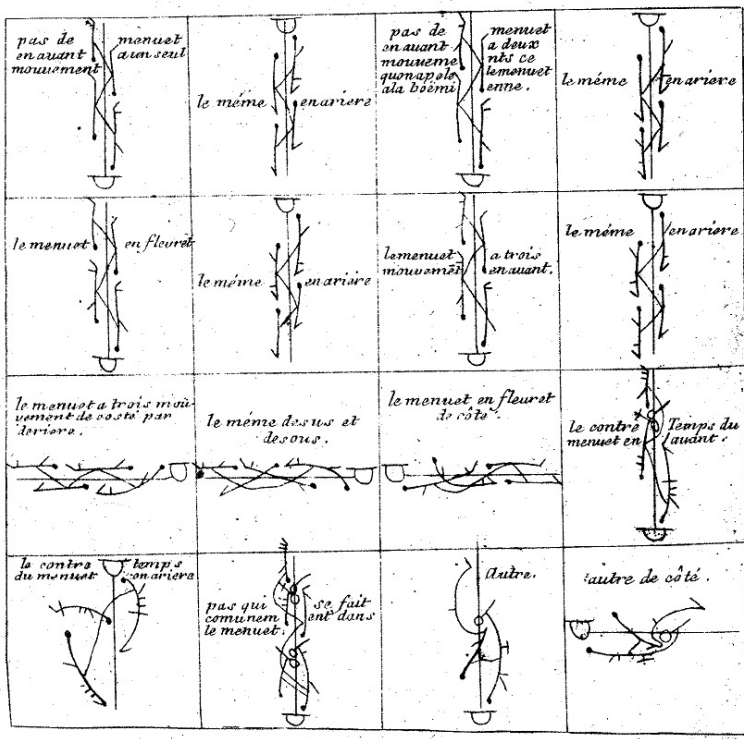 pas de menuet
en auant a un seul
mouuement
le méme en ariere
pas de menuet
en auant a deux
mouueme nts ce
quonapele lemenuet
ala boëmi enne.
le méme en ariere
le menuet en fleuret
le méme en ariere
le menuet a trois
mouvemẽt en auant.
le méme en ariere
le menuet a trois moũ
vement de costé par
deriere.
le méme desus et
desous.
le menuet en fleuret
de côté.
le contre Temps du
menuet en auant.
le contre temps
du menuet en ariere
pas qui se fait
comunem ent dans
le menuet.
autre.
autre de côté.